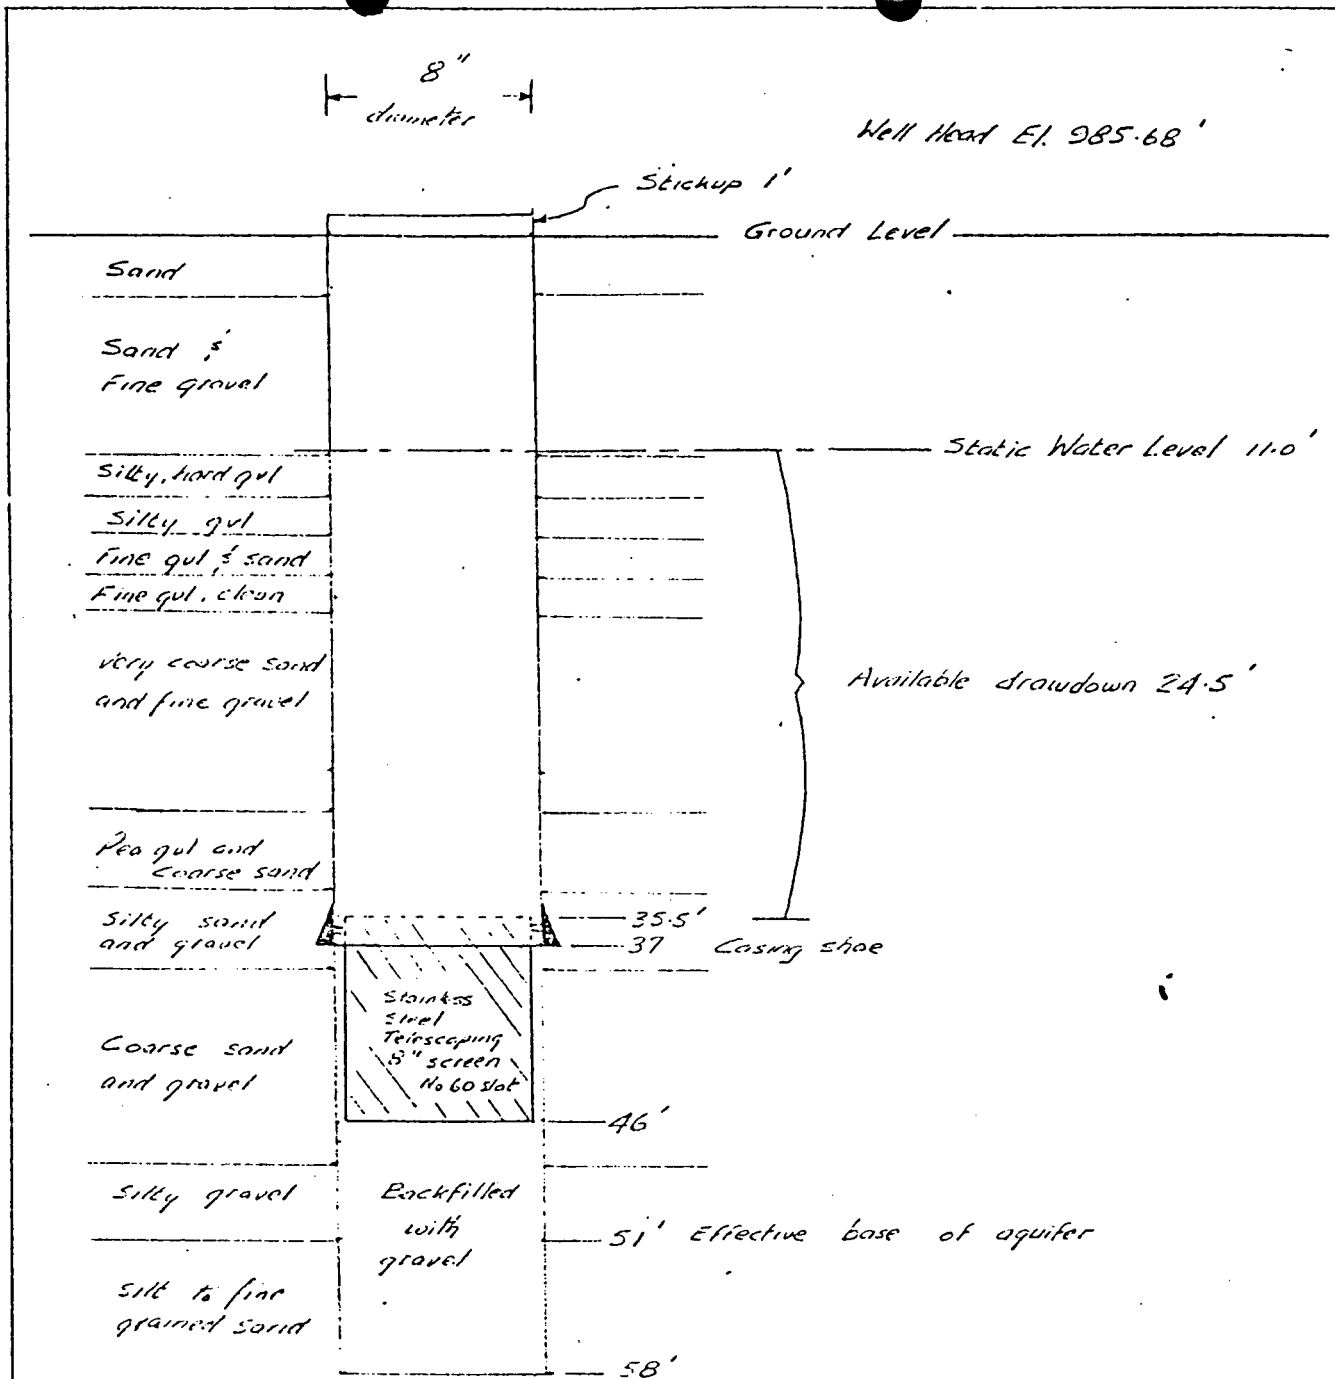 8"
diameter
Well Head El. 985.68'
Stickup 1'
Ground Level
Sand
Sand &
Fine gravel
Static Water Level 11.0'
Silty, hard gvl
Silty gvl
Fine gvl & sand
Fine gvl, clean
Very coarse sand
and fine gravel
Available drawdown 24.5'
Pea gvl and
coarse sand
Silty sand
and gravel
35.5'
37 Casing shoe
Stainless
Steel
Telescoping
8" screen
No 60 slot
Coarse sand
and gravel
46'
Silty gravel
Backfilled
with
gravel
51' Effective base of aquifer
Silt to fine
grained sand
58'